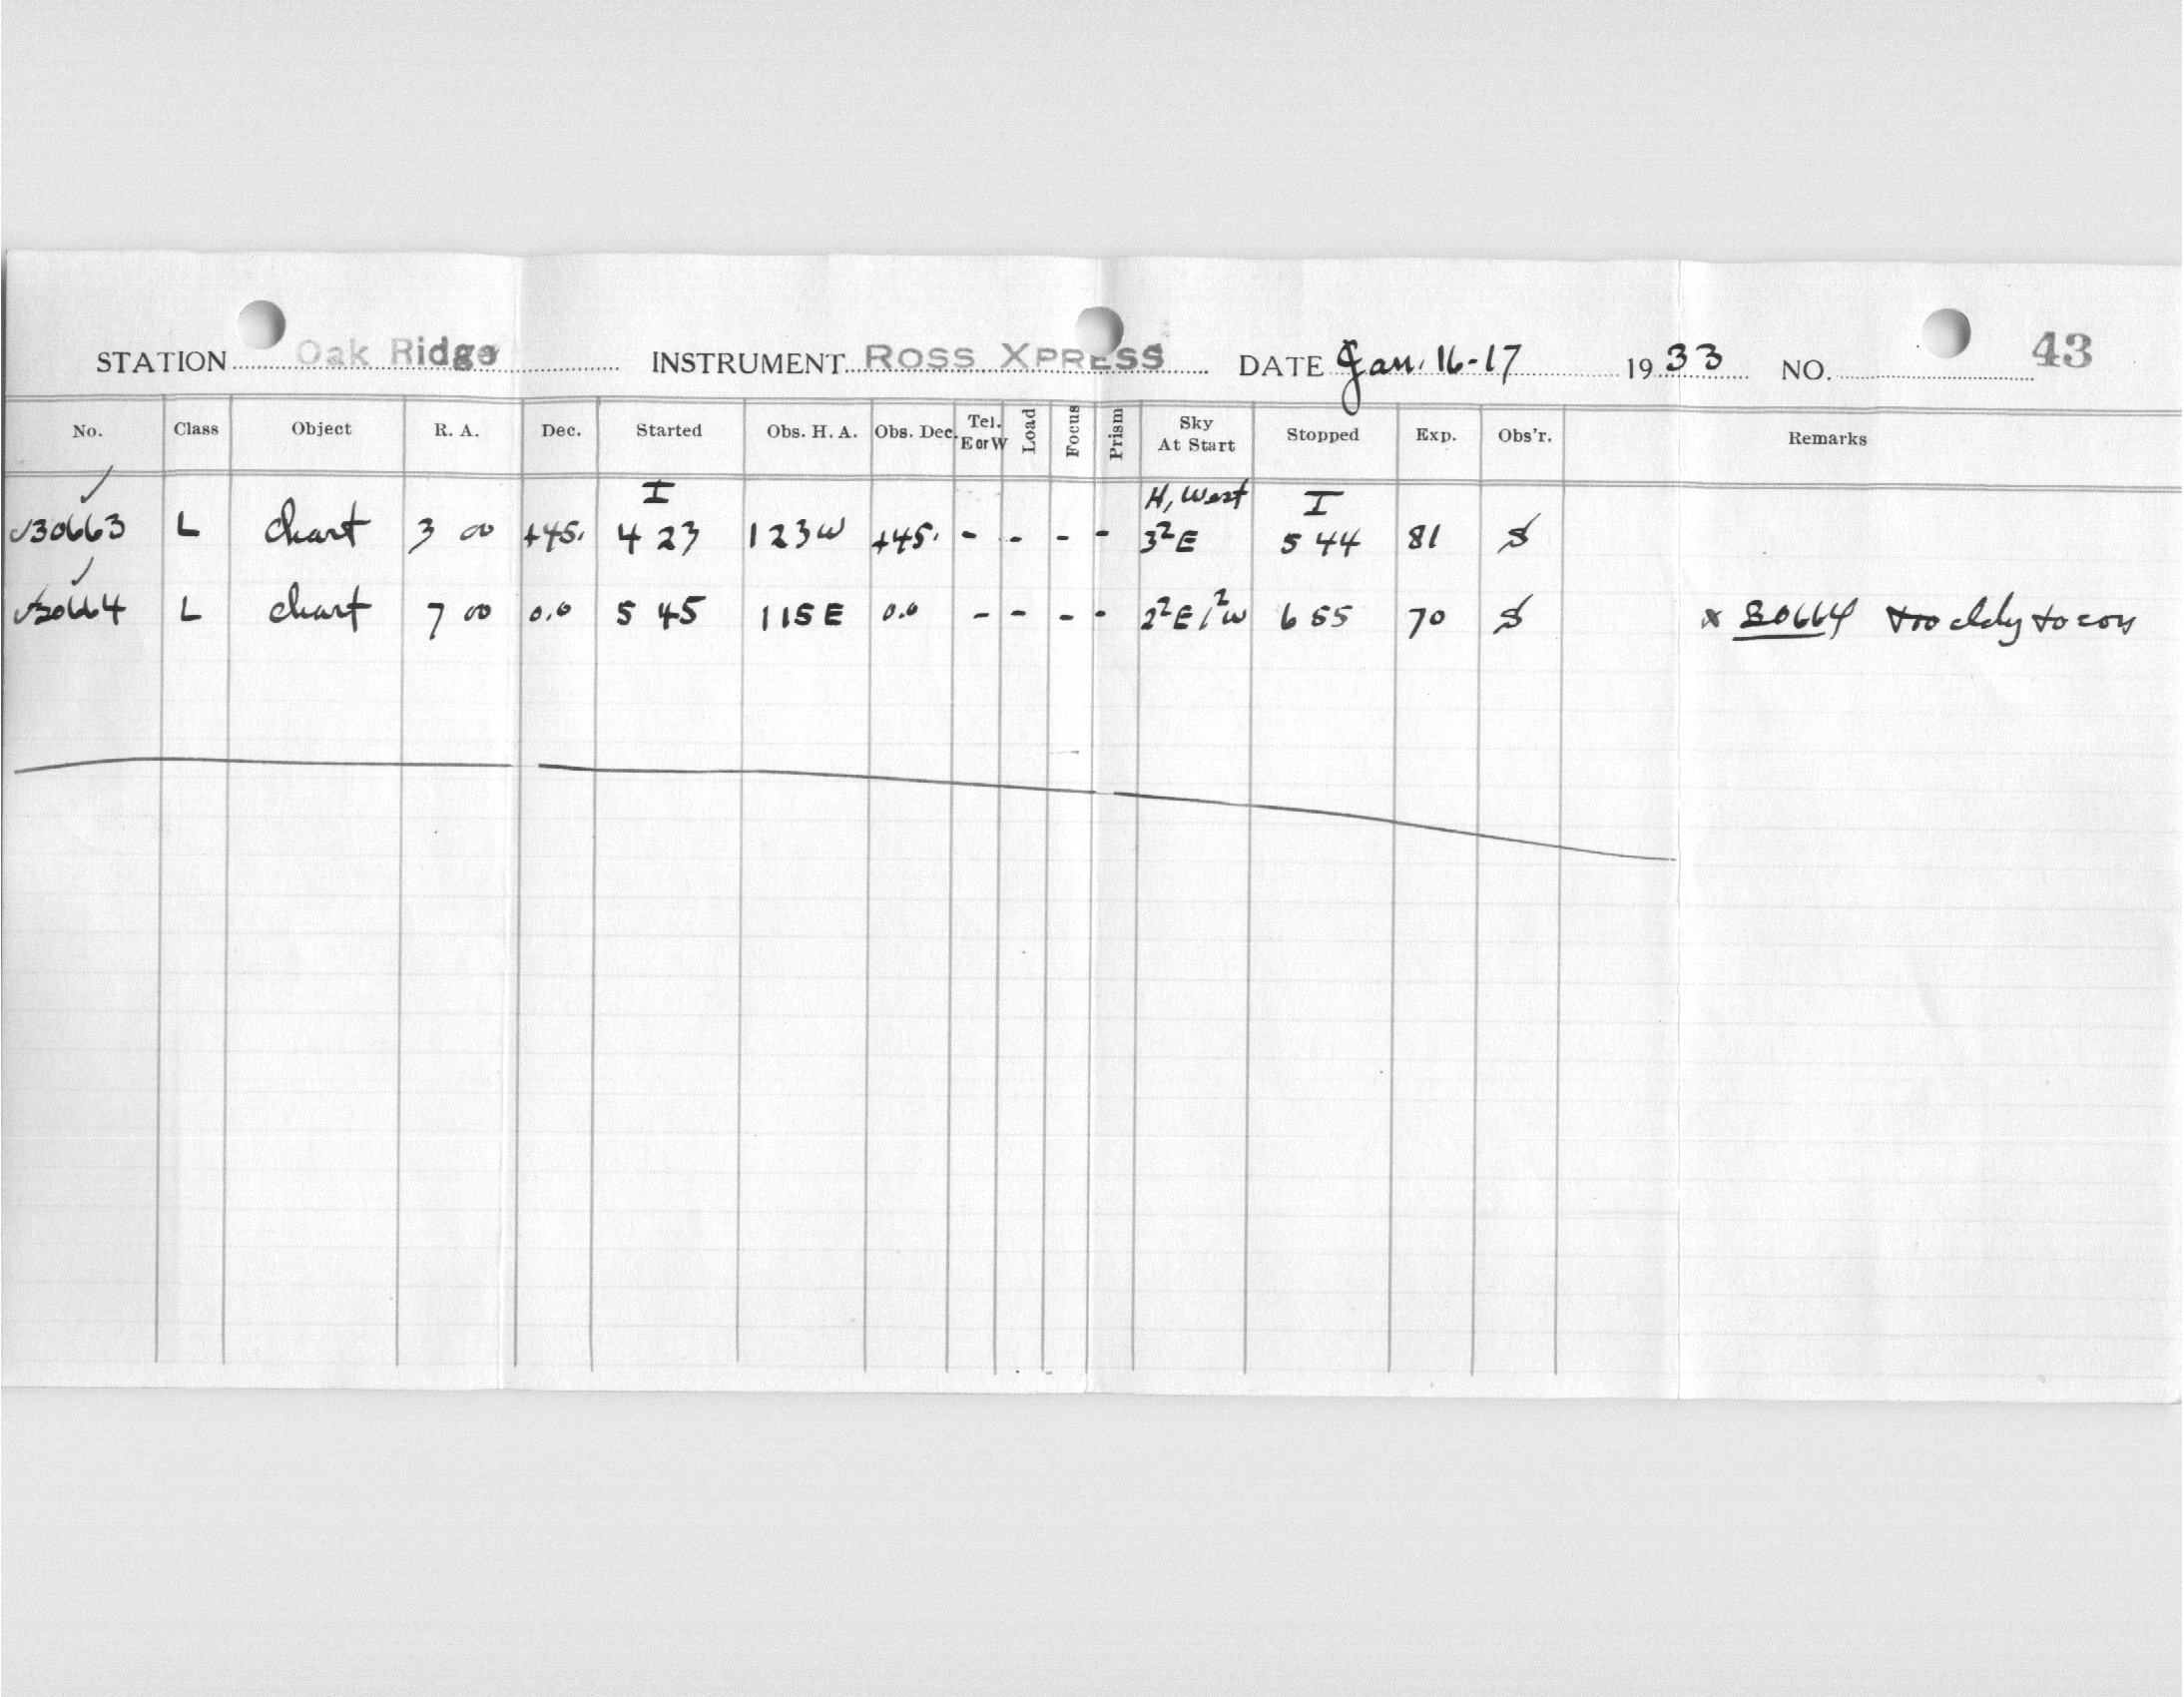 STATION Oak Ridge INSTRUMENT ROSS XPRESS DATE Jan. 16-17 1933 NO. 43
No. Class Object R. A. Dec. Started Obs. H. A. Obs. Dec. Tel. E or W Load Focus Prism Sky At Start Stopped Exp. Obs'r. Remarks
I H, West I
30663 L chart 3 00 +45. 4 23 1 23 W +45. - - - - 3²E 5 44 81 S
30664 L chart 7 00 0.0 5 45 1 15 E 0.0 - - - - 2²E/²W 6 55 70 S x 30664 too cldy to con